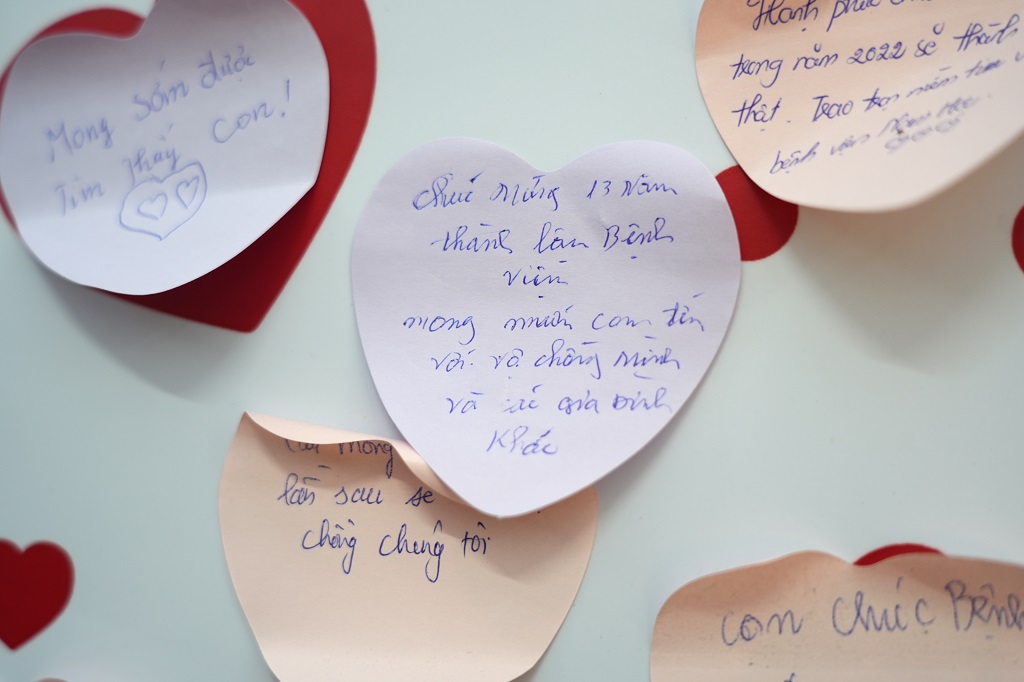 Mong sớm được
Tìm thấy con!
Hạnh phúc
trong năm 2022 sẽ thành
thật. Trao trọn niềm tin
bệnh viện
Chúc mừng 13 năm
thành lập Bệnh
viện
mong muốn con đến
với vợ chồng mình
và các gia đình
khác
mong
lần sau sẽ
chồng chúng tôi
con chúc Bệnh